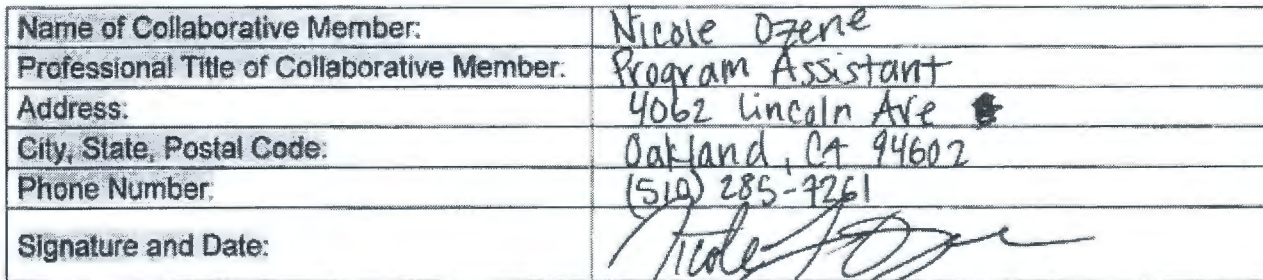 Name of Collaborative Member: Nicole Ozene
Professional Title of Collaborative Member: Program Assistant
Address: 4062 Lincoln Ave
City, State, Postal Code: Oakland, CA 94602
Phone Number: (510) 285-7261
Signature and Date: Nicole Ozene